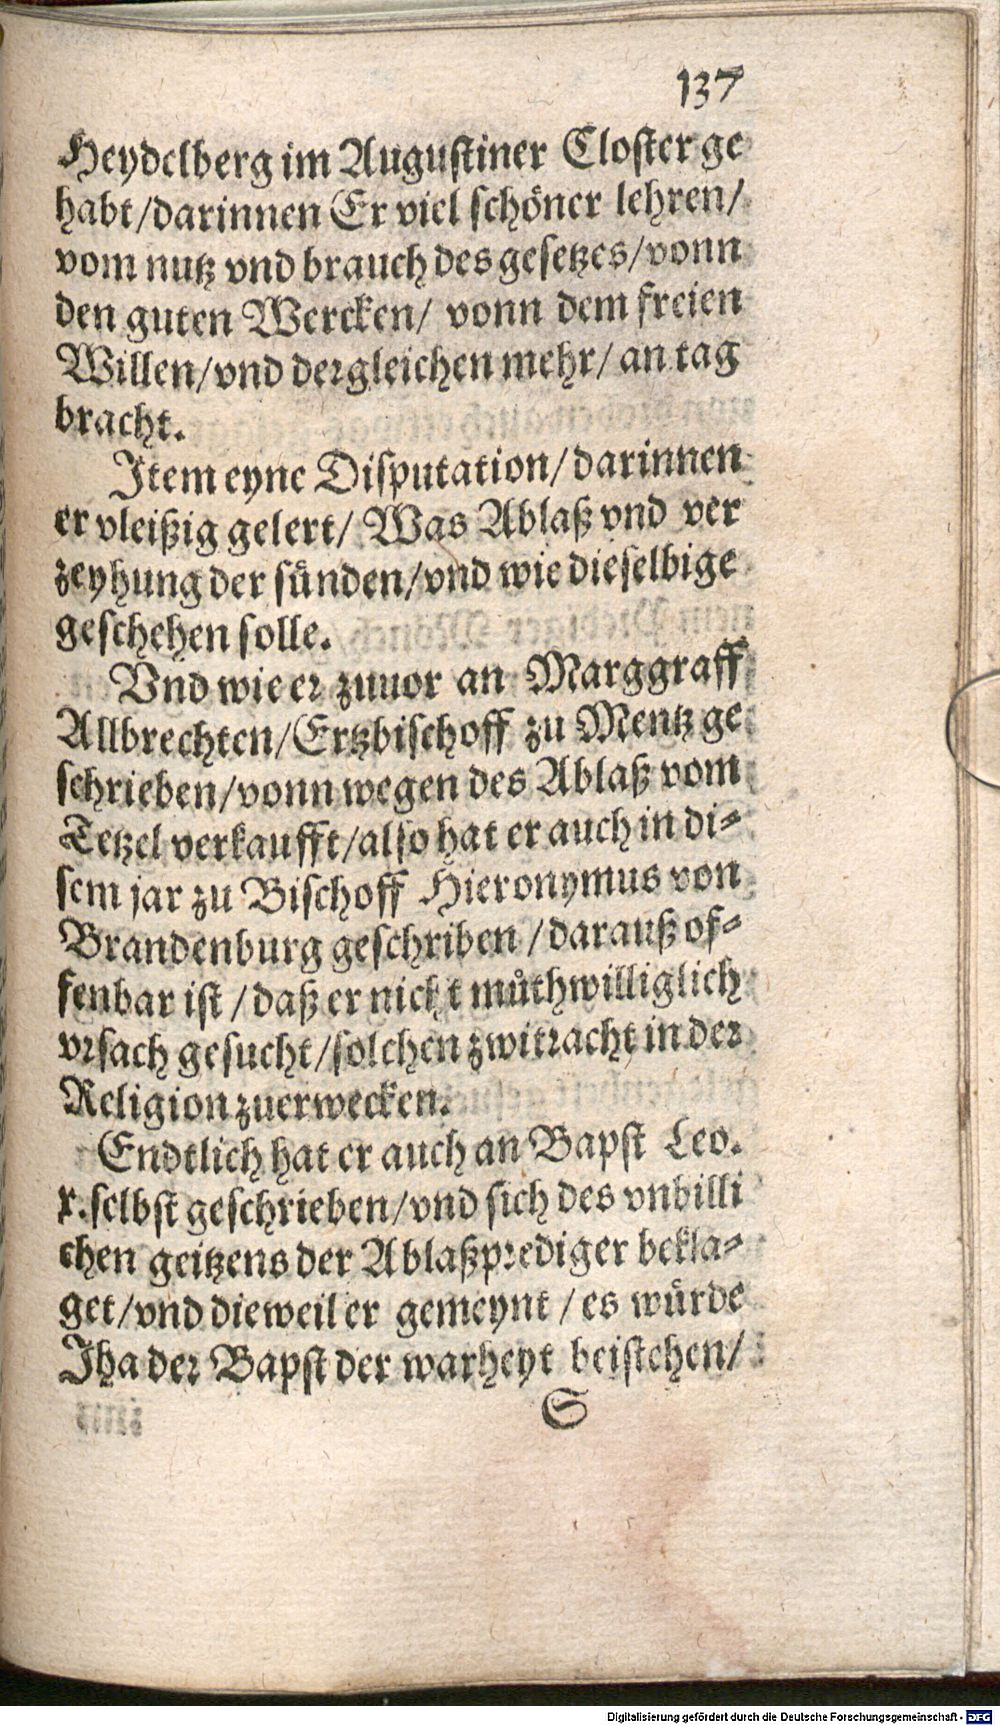 137
Heydelberg im Augustiner Closter ge
habt/darinnen Er viel schöner lehren/
vom nutz vnd brauch des gesetzes/vonn
den guten Wercken/ vonn dem freien
Willen/vnd dergleichen mehr/ an tag
bracht.
Item eyne Disputation/darinnen
er vleißig gelert/ Was Ablaß vnd ver
zeyhung der sünden/vnd wie dieselbige
geschehen solle.
Vnd wie er zuuor an Marggraff
Allbrechten/Ertzbischoff zu Mentz ge
schrieben/vonn wegen des Ablaß vom
Tetzel verkaufft/also hat er auch in di⸗
sem jar zu Bischoff Hieronymus von
Brandenburg geschriben /darauß of⸗
fenbar ist /daß er nicht můthwilliglich
vrsach gesucht/solchen zwitracht in der
Religion zuerwecken.
Endtlich hat er auch an Bapst Leo.
x.selbst geschrieben/vnd sich des vnbilli
chen geitzens der Ablaßprediger bekla⸗
get/vnd dieweil er gemeynt /es würde
Jha der Bapst der warheyt beistehen/
S
Digitalisierung gefördert durch die Deutsche Forschungsgemeinschaft - DFG